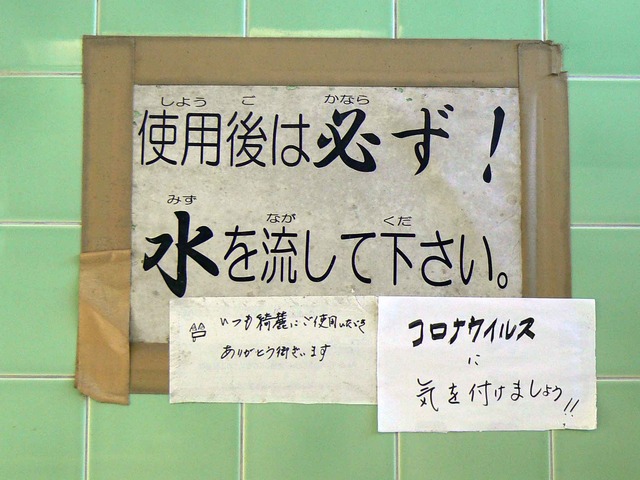 しよう ご かなら
使用後は必ず!
みず なが くだ
水を流して下さい。
いつも綺麗にご使用いただき
ありがとう御ざいます
コロナウイルス
に
気を付けましょう!!